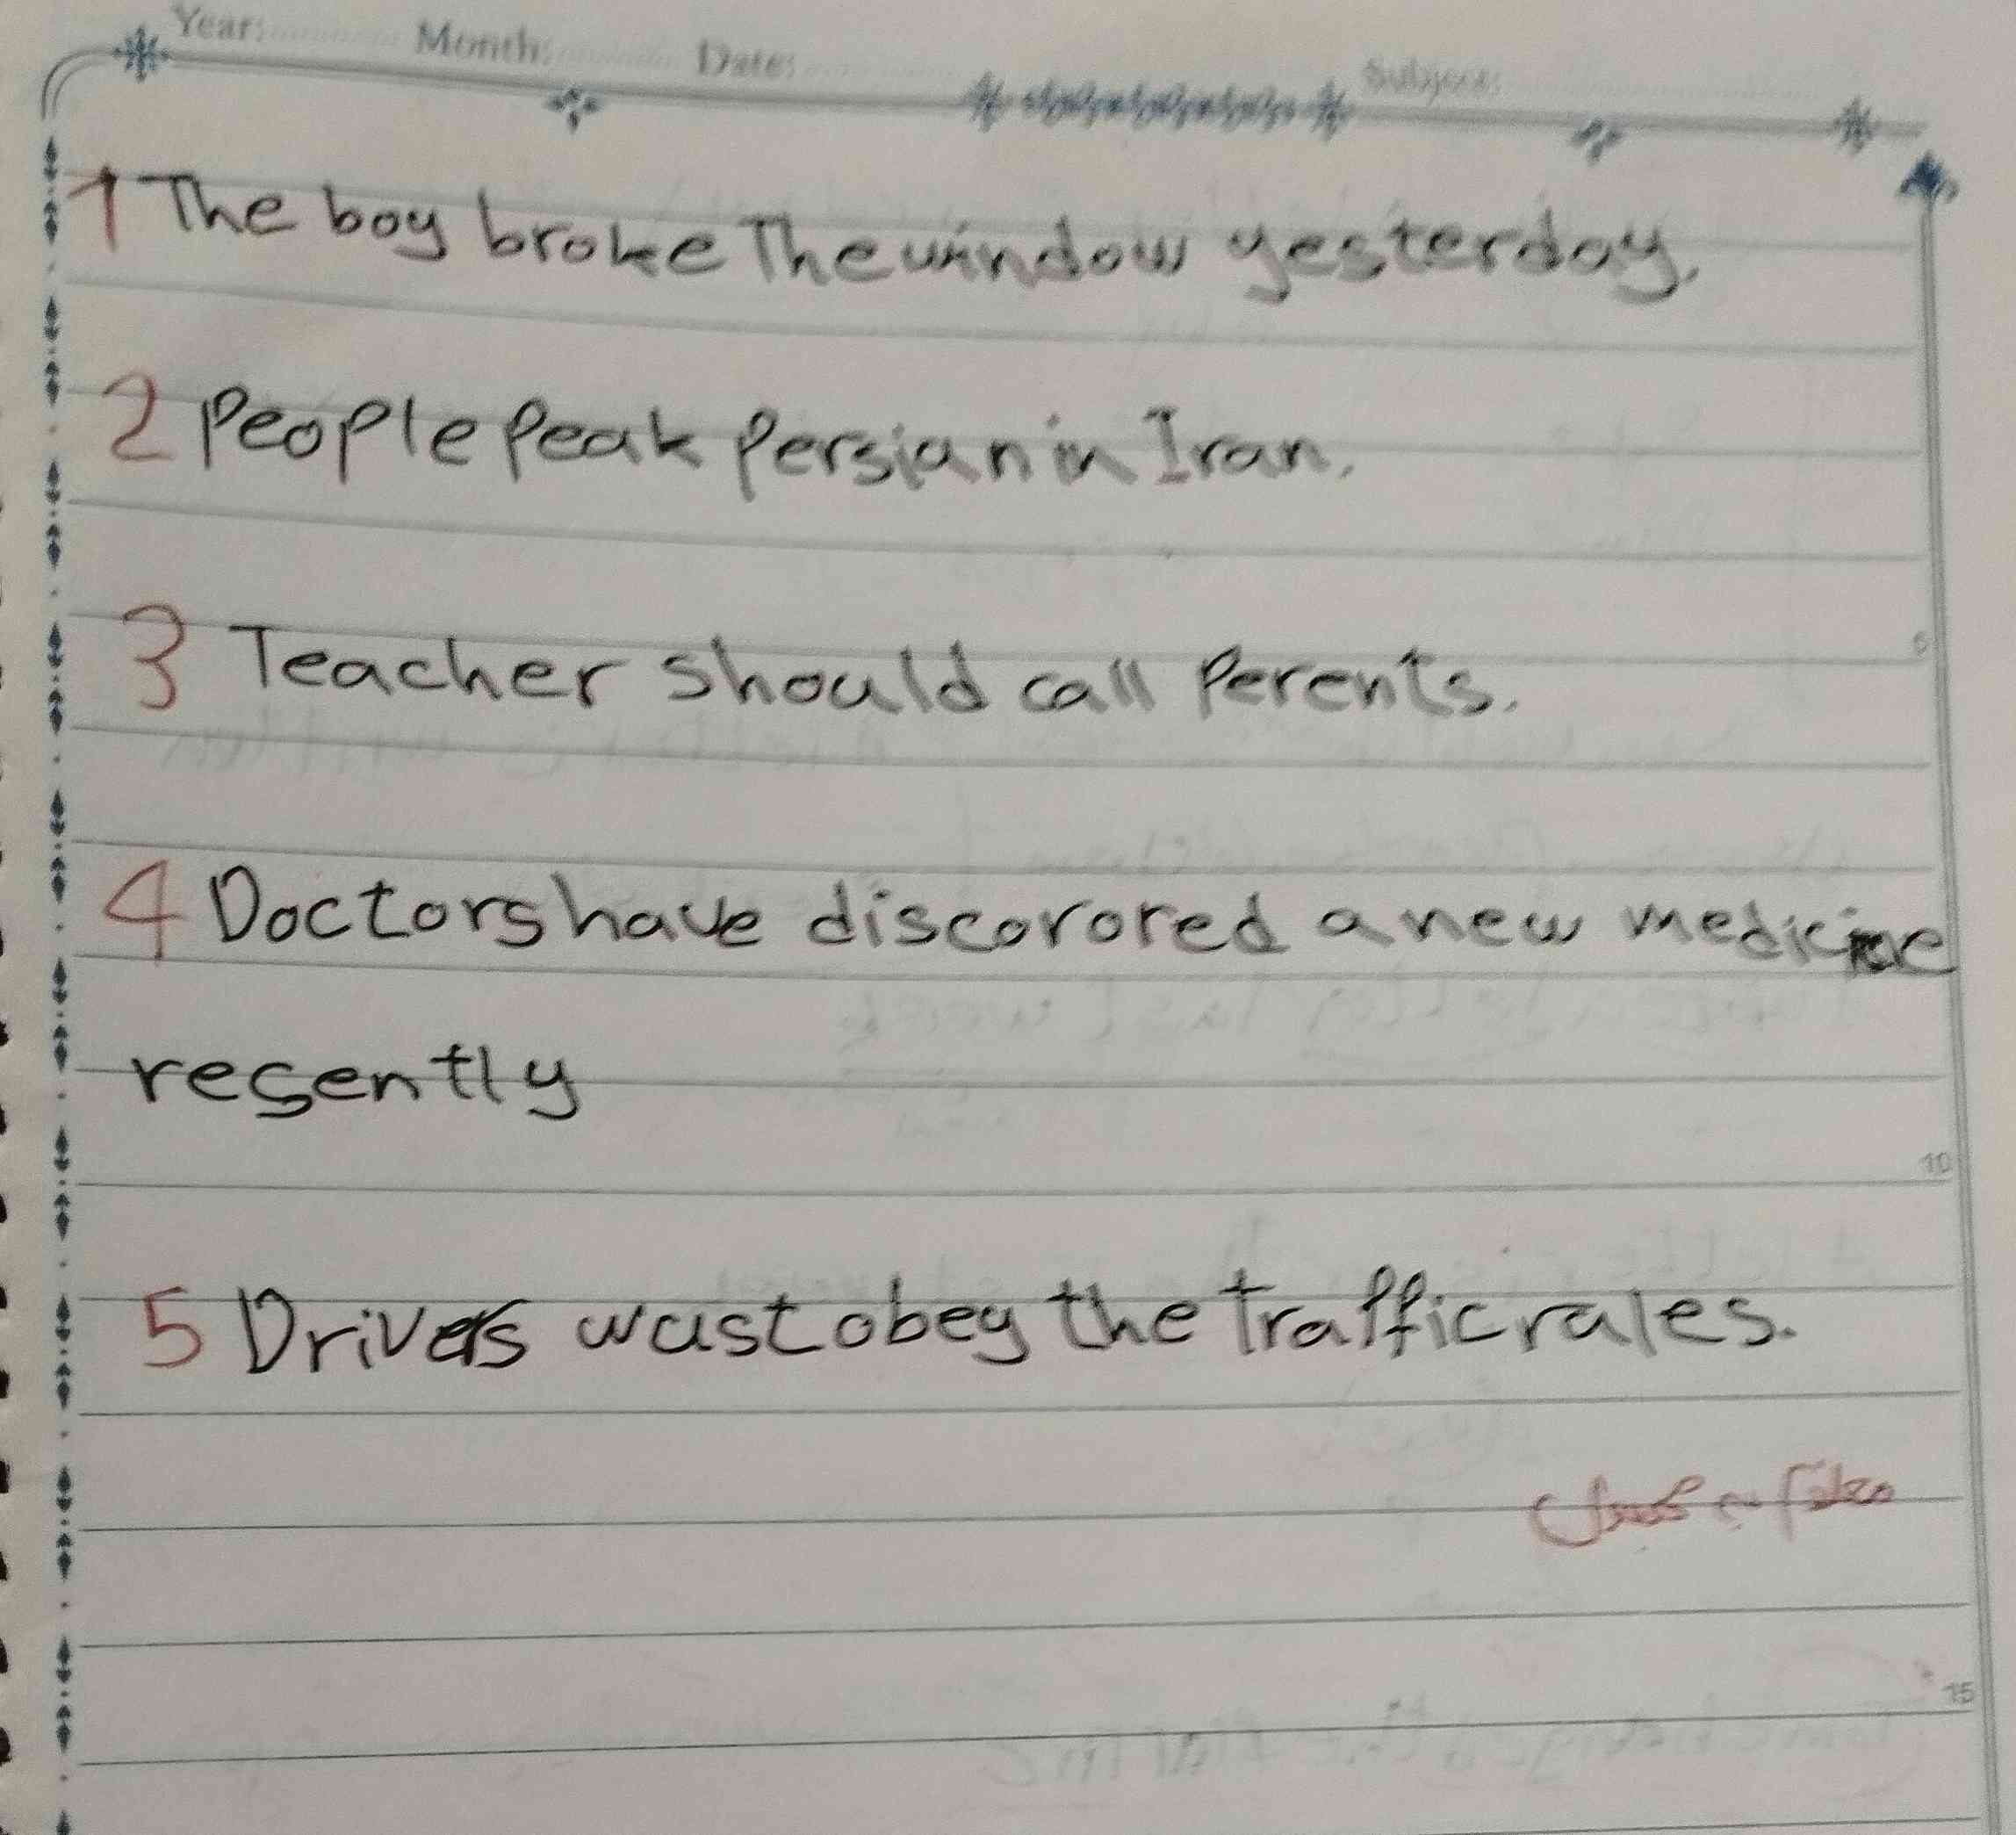 Year: Month: Date: Subject:
1 The boy broke The window yesterday.
2 People Peak Persian in Iran.
3 Teacher should call Perents.
4 Doctors have discorored a new medicine
resently
5 Drivers wust obey the traffic rales.
5
10
15